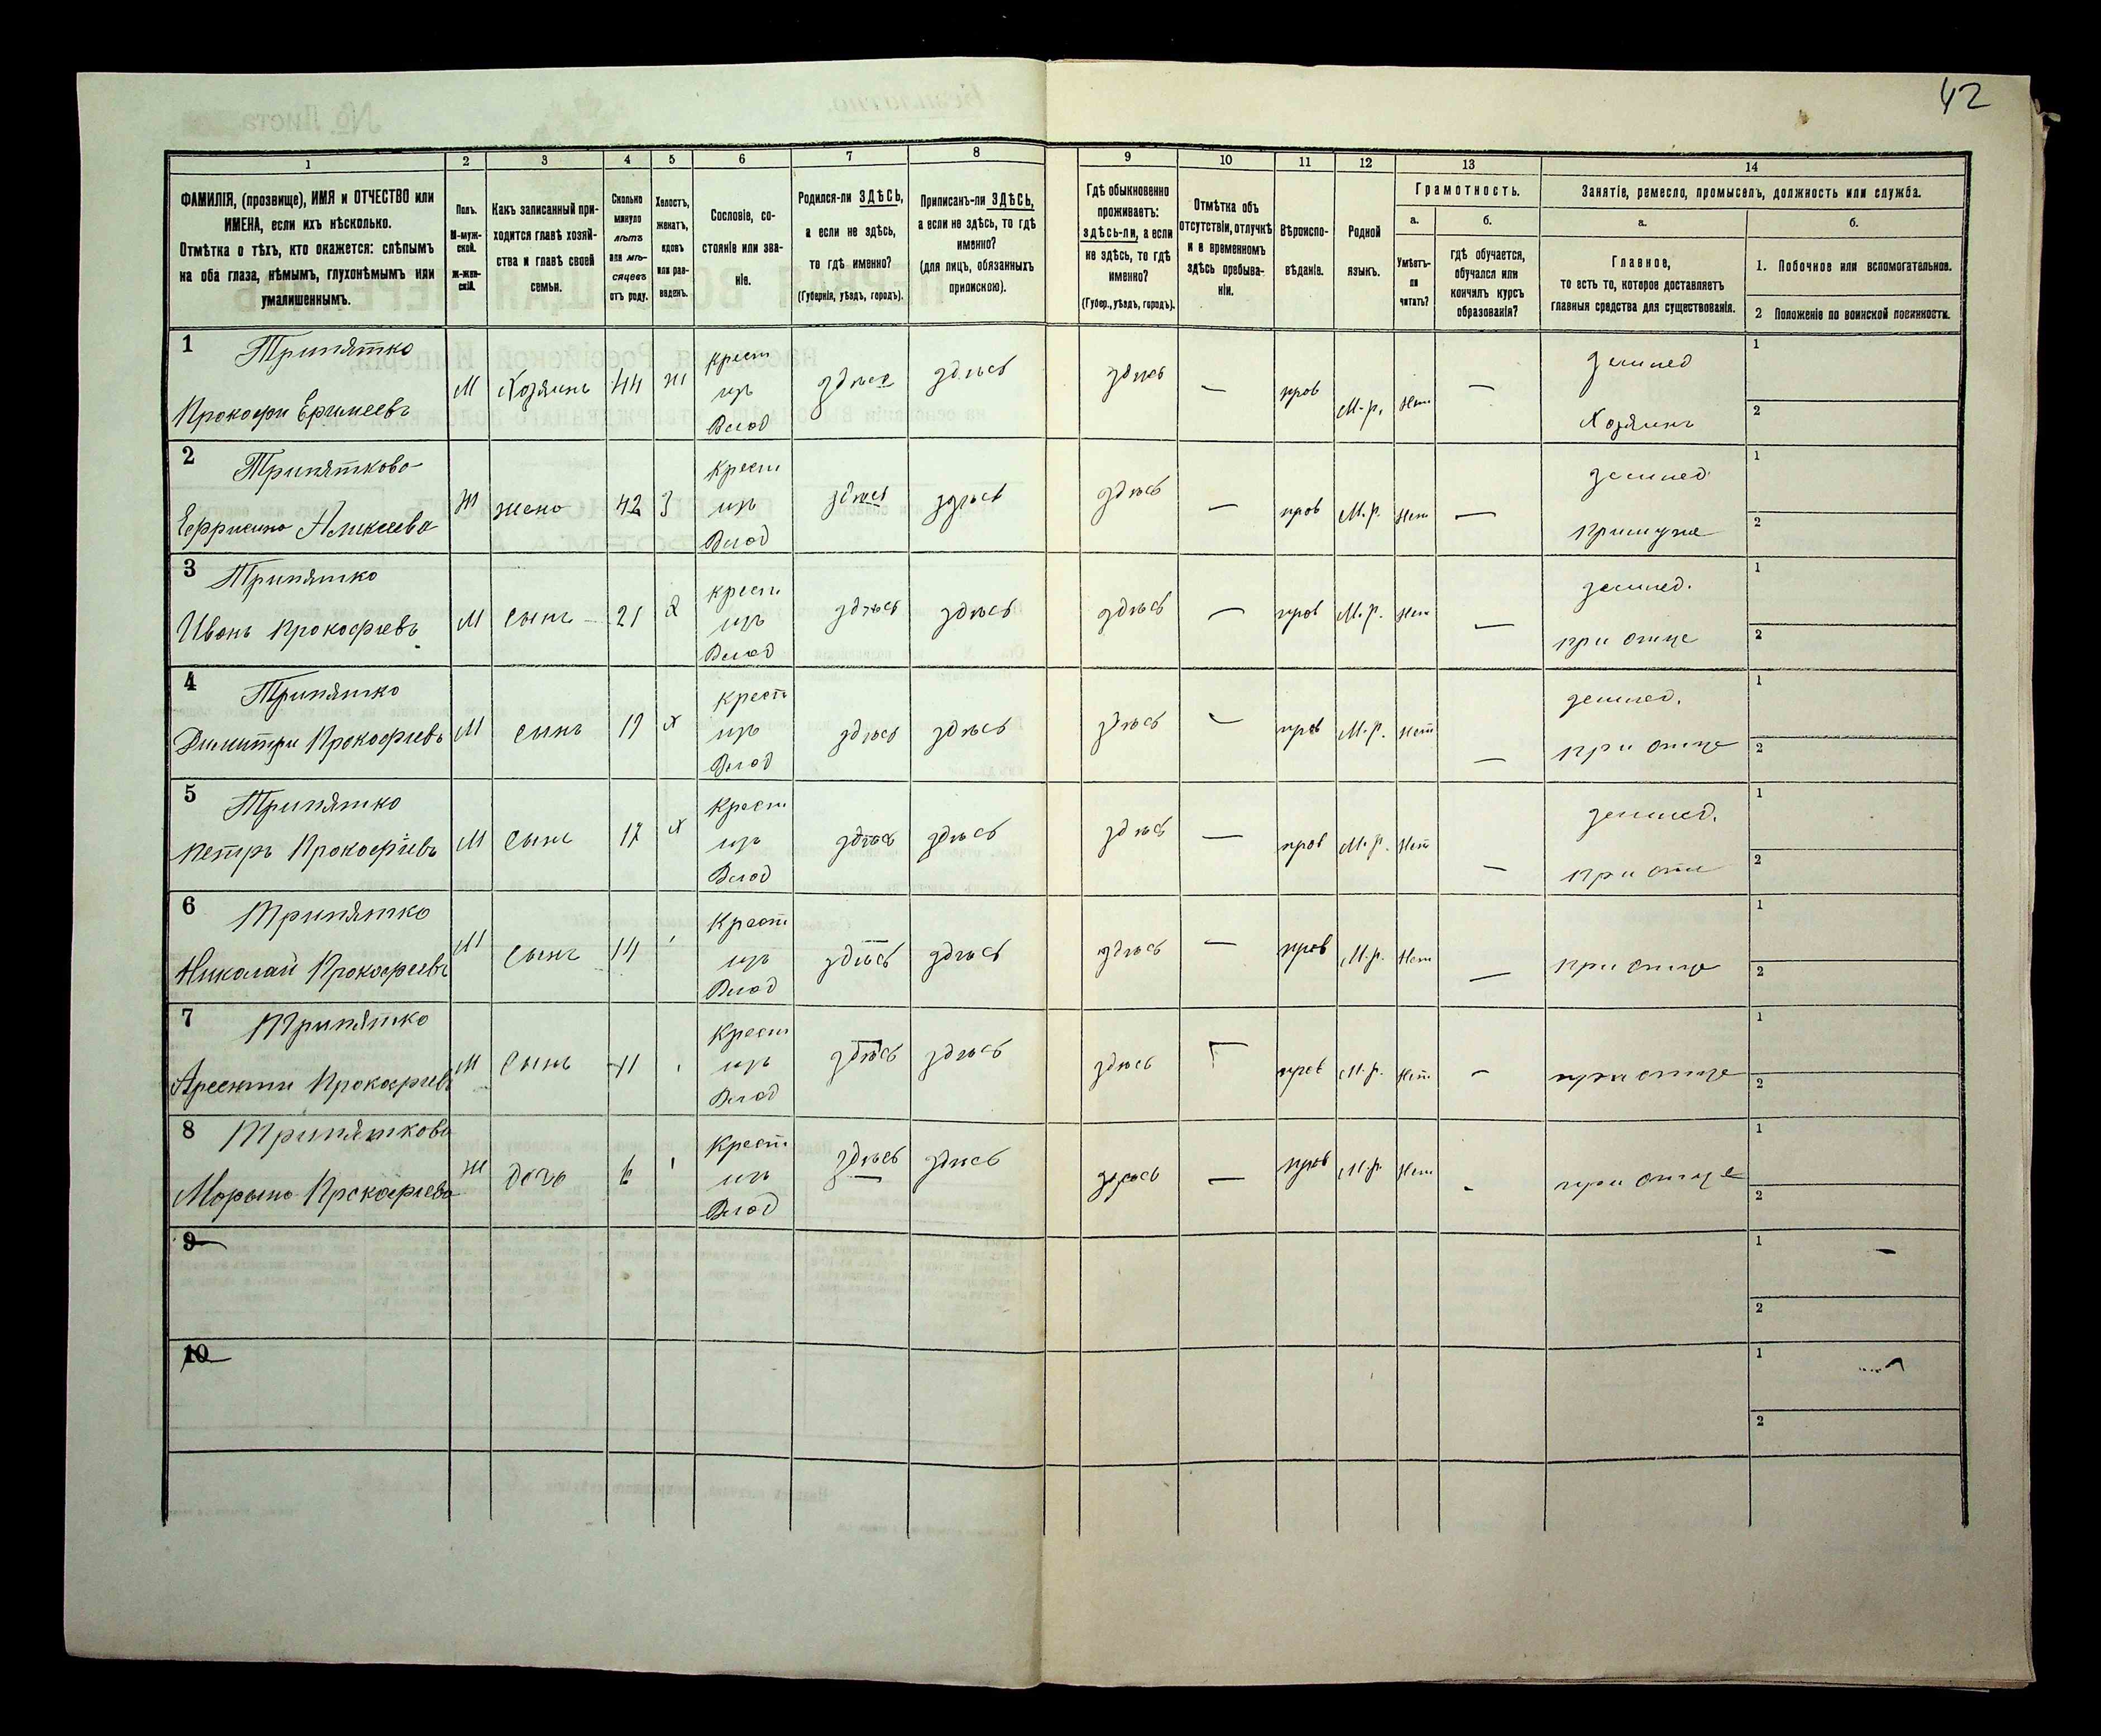 42
1
2
3
4
5
6
7
8
9
10
11
12
13
14
ФАМИЛІЯ, (прозвище), ИМЯ и ОТЧЕСТВО или
ИМЕНА, если ихъ нѣсколько.
Отмѣтка о тѣхъ, кто окажется: слѣпымъ
на оба глаза, нѣмымъ, глухонѣмымъ или
умалишеннымъ.
Полъ.
М-муж-
ской.
Ж-жен-
скій.
Какъ записанный при-
ходится главѣ хозяй-
ства и главѣ своей
семьи.
Сколько
минуло
лѣтъ
или мѣ-
сяцевъ
отъ роду.
Холостъ,
женатъ,
вдовъ
или раз-
веденъ.
Сословіе, со-
стояніе или зва-
ніе.
Родился-ли ЗДѢСЬ,
а если не здѣсь,
то гдѣ именно?
(Губернія, уѣздъ, городъ).
Приписанъ-ли ЗДѢСЬ,
а если не здѣсь, то гдѣ
именно?
(для лицъ, обязанныхъ
припискою).
Гдѣ обыкновенно
проживаетъ:
здѣсь-ли, а если
не здѣсь, то гдѣ
именно?
(Губер., уѣздъ, городъ).
Отмѣтка объ
отсутствіи, отлучкѣ
и о временномъ
здѣсь пребыва-
ніи.
Вѣроиспо-
вѣданіе.
Родной
языкъ.
Грамотность.
а.
Умѣетъ-
ли
читать?
б.
гдѣ обучается,
обучался или
кончилъ курсъ
образованія?
Занятіе, ремесло, промыселъ, должность или служба.
а.
Главное,
то есть то, которое доставляетъ
главныя средства для существованія.
б.
1. Побочное или вспомогательное.
2 Положеніе по воинской повинности.
1 Трипятко
Прокофи Еримеевъ
М Хозяинъ 44 ж крест изъ Влад здѣсь здѣсь здѣсь — пров М.р. Нет —
землед Хозяинъ
1
2
2 Трипяткова
Ефрисина Аликсеева
Ж жена 42 З Крест изъ Влад здѣсь здѣсь здѣсь — пров М.р. Нет —
землед при муже
1
2
3 Трипятко
Иванъ Прокофиевъ
М Сынъ 21 х крест изъ Влад здѣсь здѣсь здѣсь — пров М.р. Нет —
землед. при отце
1
2
4 Трипятко
Димитри Прокофиевъ
М сынъ 19 х Крест изъ Влад здѣсь здѣсь здѣсь — пров М.р. Нет —
землед. при отце
1
2
5 Трипятко
Петръ Прокофіевъ
М Сынъ 17 х Крест изъ Влад здѣсь здѣсь здѣсь — пров М.р. Нет —
землед. при
1
2
6 Трипятко
Николаи Прокофиевъ
М Сынъ 14 Крест изъ Влад здѣсь здѣсь здѣсь — пров М.р. Нет —
при отце
1
2
7 Трипятко
Арсентии Прокофиевъ
М Сынъ 11 Крест изъ Влад здѣсь здѣсь здѣсь пров М.р. Нет —
при отце
1
2
8 Трипяткова
Марына Прокофиева
Ж дочь 6 Крест изъ Влад здѣсь здѣсь здѣсь — пров М.р. Нет -
при отце
1
2
9
1
2
10
1
2